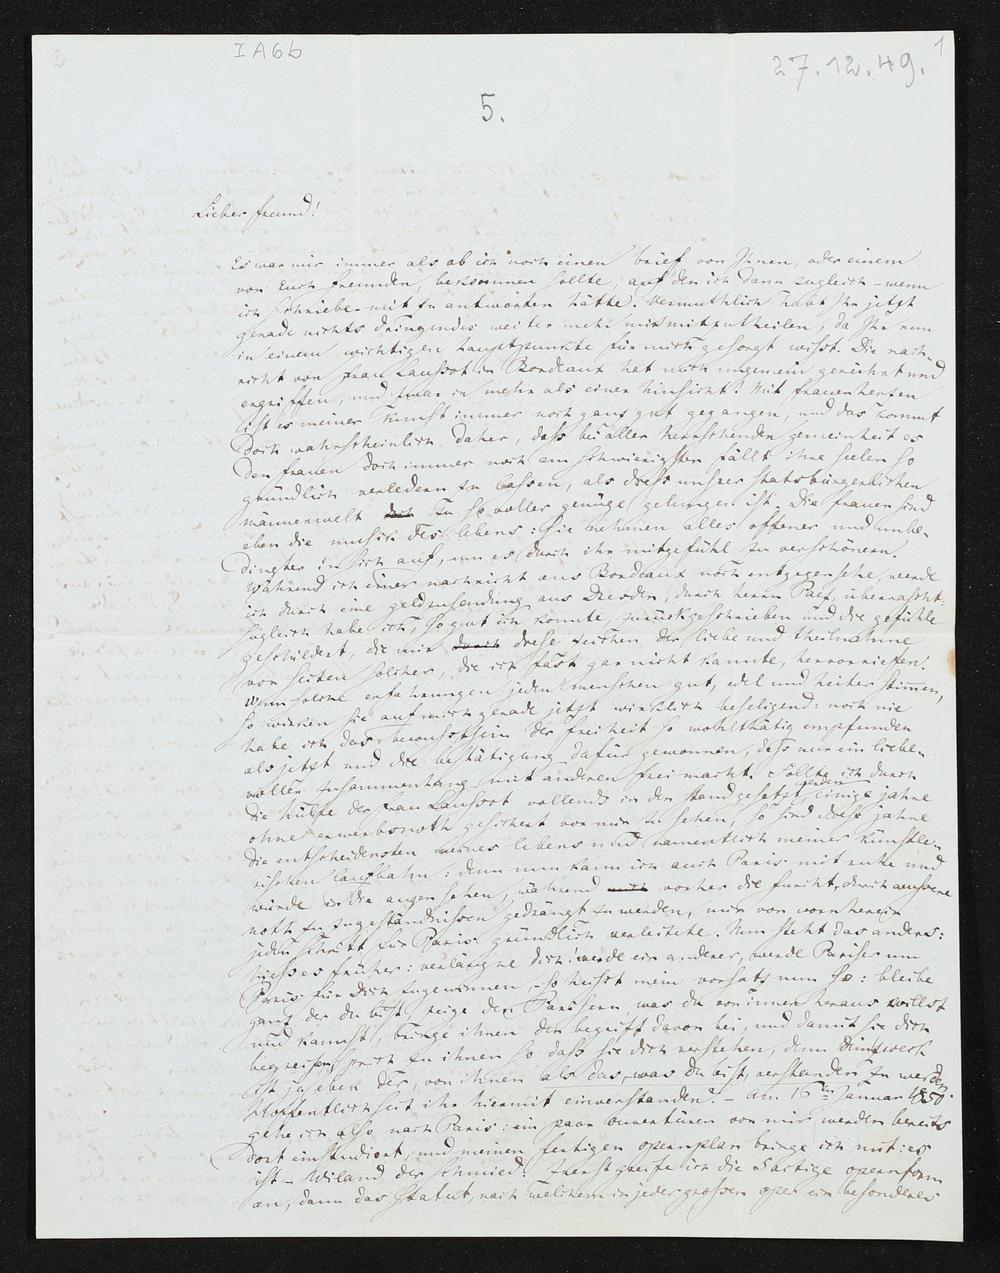 2
I A 6 b
27.12.49.
1
5.
Lieber freund!
Es war mir immer als ob ich noch einen brief von Ihnen, oder einem
von Euch freunden, bekommen sollte, auf den ich dann zugleich – wenn
ich schriebe – mit zu antworten hätte. Vermuthlich habt Ihr jetzt
gerade nichts dringendes weiter mehr mir mitzutheilen, da Ihr nun
in einem wichtigen hauptpunkte für mich gesorgt wisst. Die nach-
richt von frau Laussot in Bordeaux hat mich ungemein gerührt und
ergriffen, und zwar in mehr als einer hinsicht! Mit frauenherzen
ist es meiner kunst immer noch ganz gut gegangen, und das kommt
doch wahrscheinlich daher, dass bei aller herrschenden gemeinheit es
den frauen doch immer noch am schwierigsten fällt ihre seelen so
gründlich verledern zu lassen, als diess unsrer staatsbürgerlichen
männerwelt zu so voller genüge gelungen ist. Die frauen sind
eben die musik des lebens: sie nehmen alles offener und unbe-
dingter in sich auf, um es durch ihr mitgefühl zu verschönern.
Während ich einer nachricht aus Bordeaux noch entgegensehe, werde
ich durch eine geldzusendung aus Dresden, durch herrn überrascht:
sogleich habe ich, so gut ich konnte, zurückgeschrieben und die gefühle
geschildert, die mir diese zeichen der liebe und theilnahme
von seiten solcher, die ich fast gar nicht kannte, hervorriefen.
Wenn solche erfahrungen jeden menschen gut, edel und heiter stimmen,
so wirken sie auf mich gerade jetzt wirklich beseligend: noch nie
habe ich das bewusstsein der freiheit so wohlthätig empfunden
als jetzt und die bestätigung dafür gewonnen, dass nur ein liebe-
voller zusammenhang mit anderen frei macht. Sollte ich durch
die hülfe der frau Laussot vollends in den stand gesetzt werden einige jahre
ohne erwerbsnoth gesichert vor mir zu sehen, so sind diese jahre
die entscheidensten meines lebens und namentlich meiner künstle-
rischen laufbahn: denn nun kann ich auch Paris mit ruhe und
würde in die augen sehen, während vorher die furcht, durch äussere
noth zu zugeständnissen gedrängt zu werden, mir von vorn herein
jeden schritt für Paris gründlich verleidete. Nun steht das anders:
hiess es früher: verläugne dich! werde ein anderer, werde Pariser um
Paris für dich zu gewinnen, – so heisst mein vorsatz nun so: bleibe
ganz der du bist, zeige den Parisern, was du von innen heraus willst
und kannst, bringe ihnen den begriff davon bei, und damit sie dich
begreifen, sprich zu ihnen so dass sie dich verstehen, denn dein zweck
ist ja eben der, von ihnen als das, was du bist, verstanden zu werden.
Hoffentlich seit ihr hiermit einverstanden? – Am 16ten Januar 1850.
gehe ich also nach Paris: ein paar ouvertüren von mir werden bereits
dort einstudiert, und meinen fertigen opernplan bringe ich mit: es
ist – Wiland der Schmied. Zuerst greife ich die 5actige opernform
an, dann das statut, nach welchem in jeder grossen oper ein besonderes